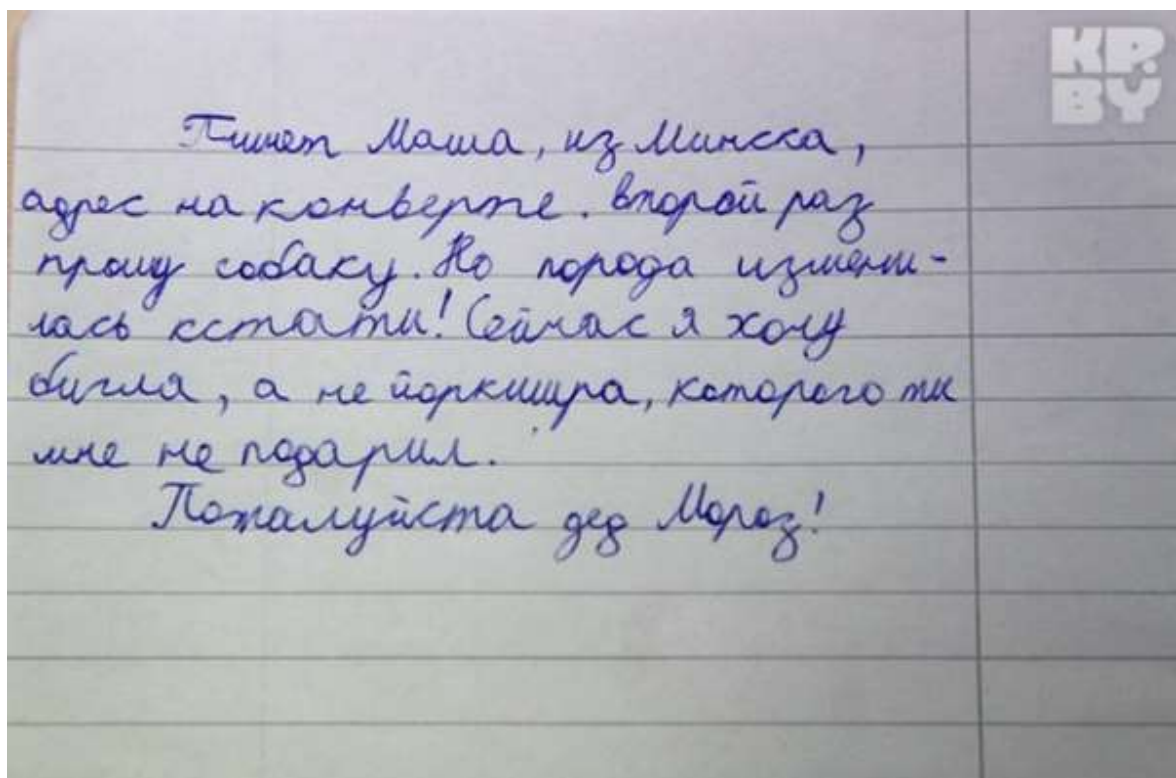 КР.
BY
Пишет Маша, из Минска,
адрес на конверте. второй раз
прошу собаку. Но порода измени-
лась кстати! Сейчас я хочу
бигля, а не йоркшира, которого ты
мне не подарил.
Пожалуйста дед Мороз!